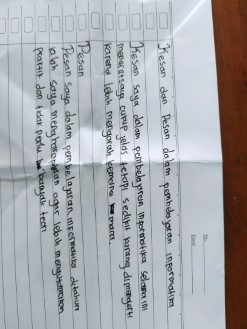 Kesan dan Pesan dalam pembelajaran informatika
Kesan saya dalam pembelajran informatika selama ini
menurut saya cukup jelas tetapi sedikit kurang dimengerti
karena lebih mengarah kemana mana
Pesan
Pesan saya dalam pembelajaran informatika ditahun
ialah saya mengharapkan agar lebih mengutamakan
praktit dan tidak perlu banyak teori